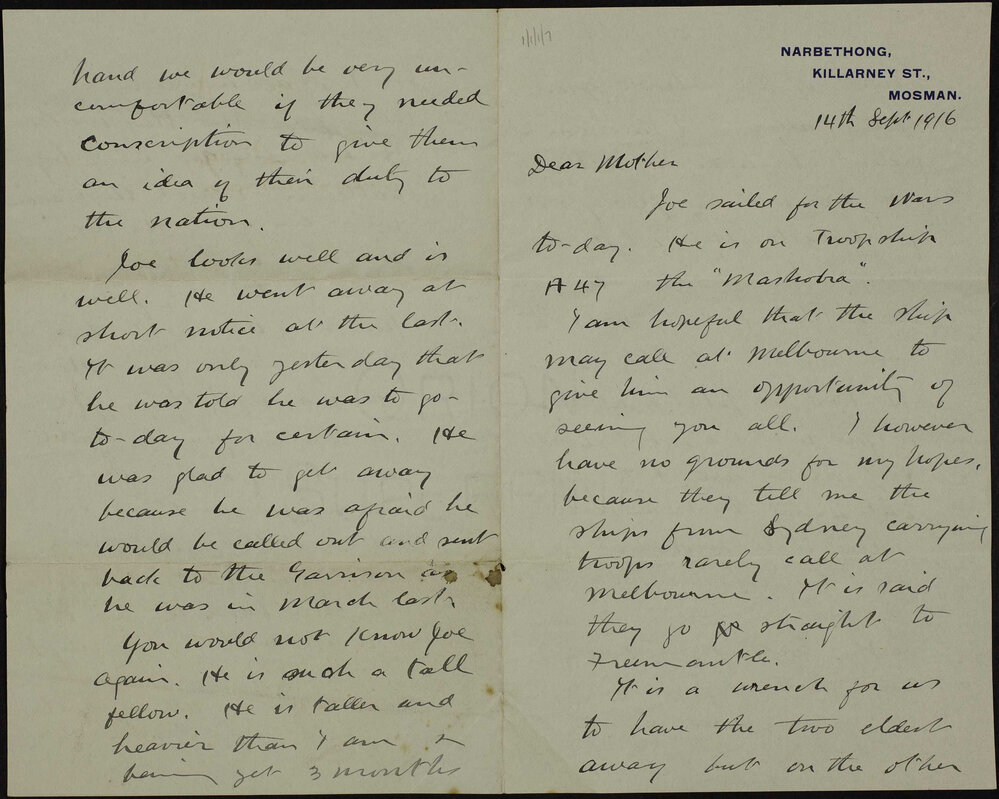 1/1/1/7
NARBETHONG,
KILLARNEY ST.,
MOSMAN.
14th Sept 1916
Dear Mother
Joe sailed for the Wars
to-day. He is on Troopship
A 47 the "Mashobra".
I am hopeful that the ship
may call at Melbourne to
give him an opportunity of
seeing you all. I however
have no grounds for my hopes,
because they tell me the
ships from Sydney carrying
troops rarely call at
Melbourne. It is said
they go straight to
Freemantle.
It is a wrench for us
to have the two eldest
away but on the other
hand we would be very un-
comfortable if they needed
conscription to give them
an idea of their duty to
the nation.
Joe looks well and is
well. He went away at
short notice at the last.
It was only yesterday that
he was told he was to go-
to-day for certain. He
was glad to get away
because he was afraid he
would be called out and sent
back to the Garrison as
he was in March last.
You would not know Joe
again. He is such a tall
fellow. He is taller and
heavier than I am &
having yet 3 months